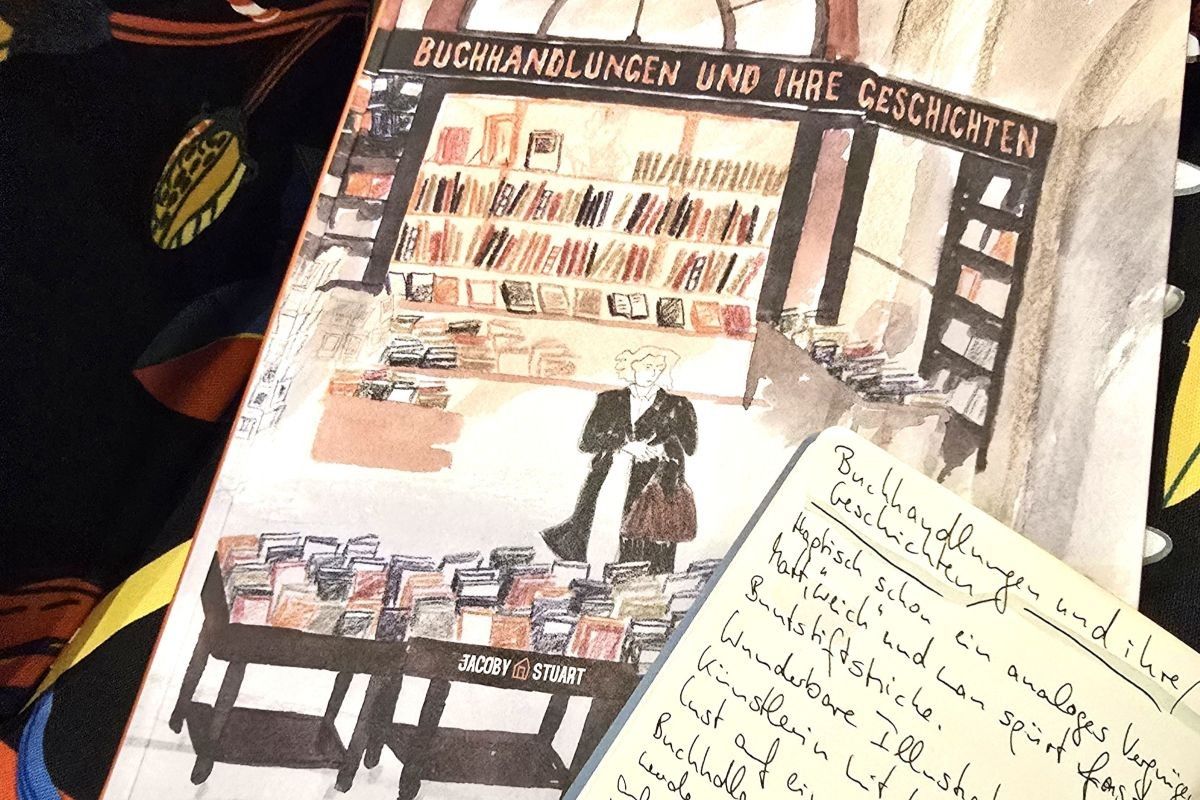 BUCHHANDLUNGEN UND IHRE GESCHICHTEN
JACOBY STUART
Buchhandlungen und ihre
Geschichten
Haptisch schon ein analoges Vergnügen
Matt, "weich" und man spürt fast
Buntstiftstriche.
Wunderbare
Künstlerin mit
Lust auf ein
Buchhdlg